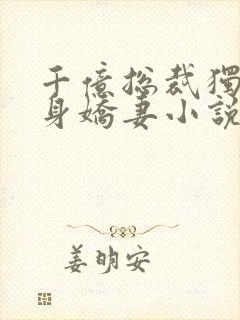 千億總裁獨
身嬌妻小說
姜明安